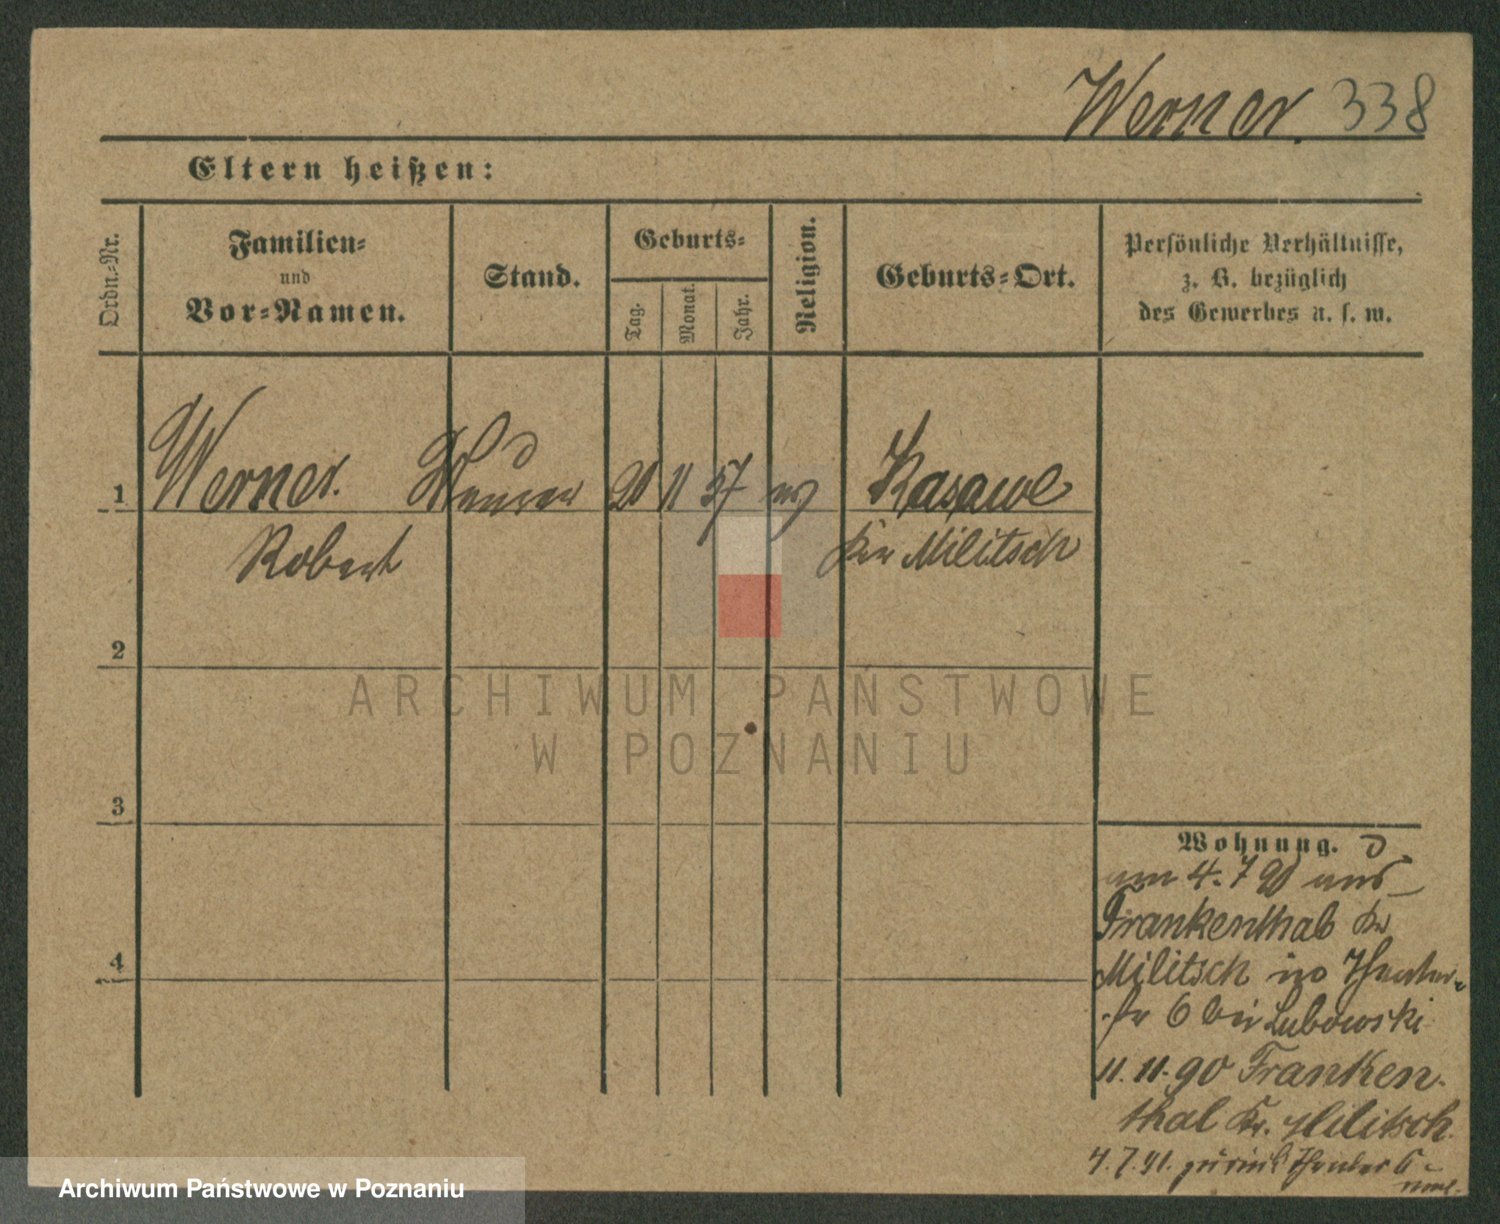 Werner. 338
Eltern heißen:
Ordn.=Nr.
Familien=
und
Vor=Namen.
Stand.
Geburts=
Tag.
Monat.
Jahr.
Religion.
Geburts=Ort.
Persönliche Verhältnisse,
z. B. bezüglich
des Gewerbes u. s. w.
1 Werner. Maurer 20 11 57 ev Kasawe
Robert Kr Militsch
2
3
4
Wohnung.
am 4. 7 90 aus
Frankenthal Kr
Militsch no Theater=
str 6 bei Lubowski
11. 11. 90 Franken.
thal Kr. Militsch.
4. 7. 91. zurück Theater 6
ARCHIWUM PAŃSTWOWE
W POZNANIU
Archiwum Państwowe w Poznaniu